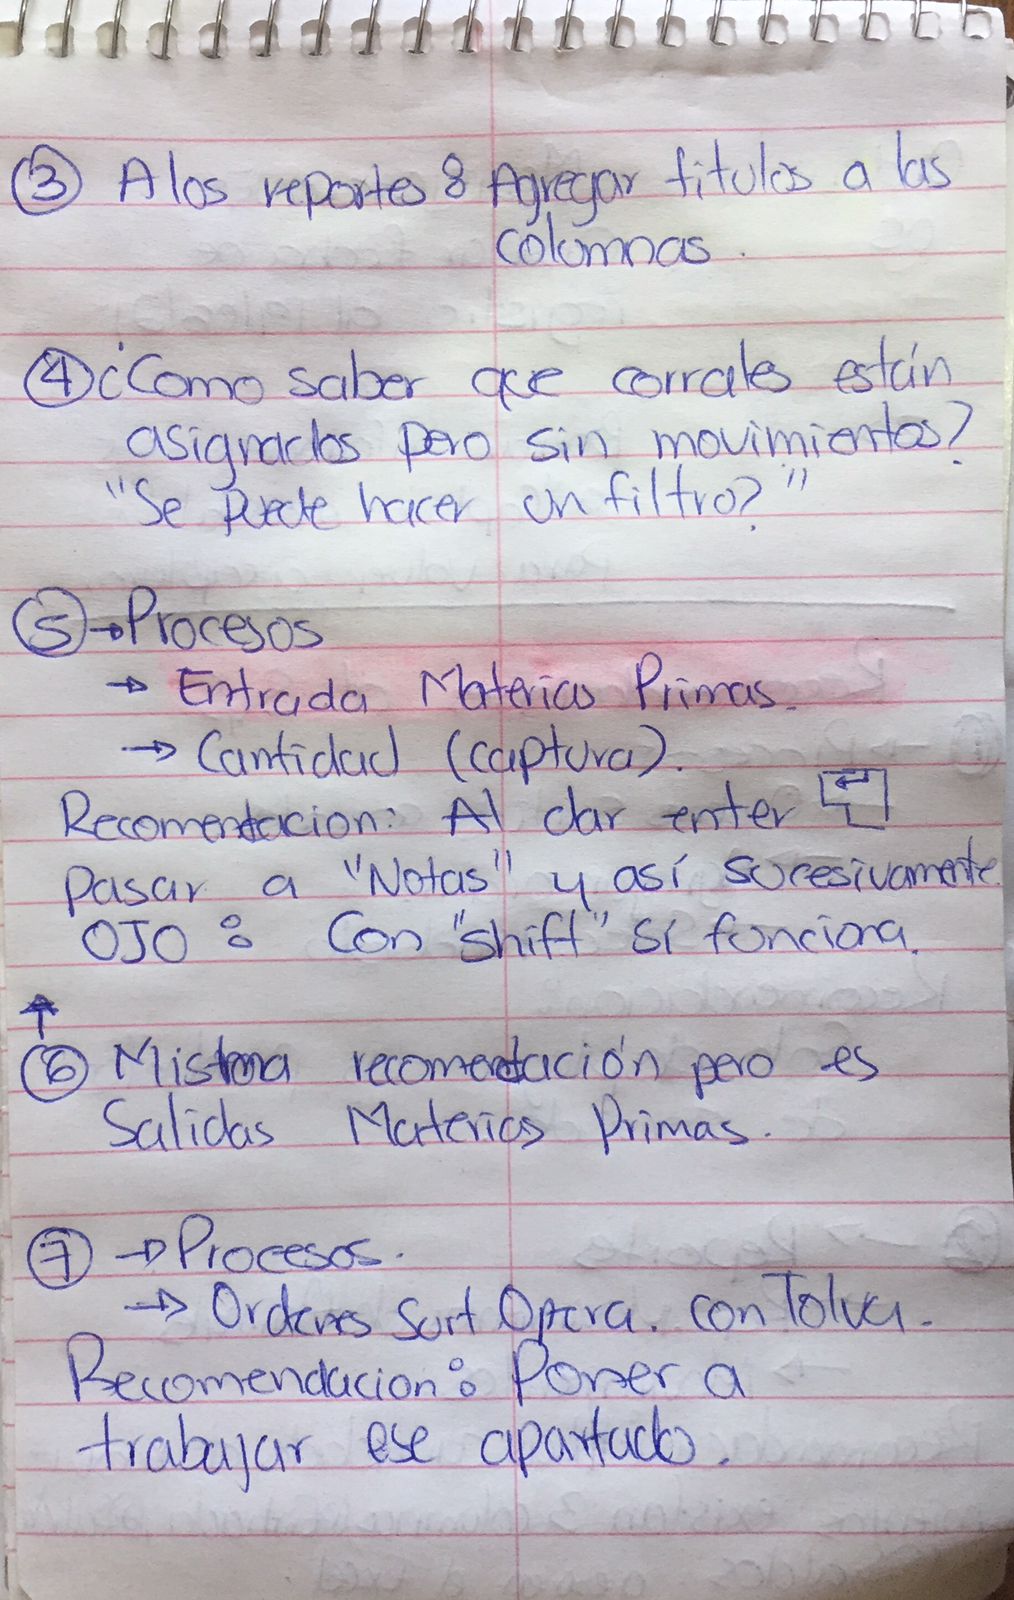 ③ A los reportes: Agregar titulos a las
columnas.
④ ¿Como saber que corrales están
asignados pero sin movimientos?
"Se puede hacer un filtro?"
⑤ → Procesos
→ Entrada Materias Primas.
→ Cantidad (captura).
Recomendacion: Al dar enter ↵
pasar a "Notas" y así sucesivamente.
OJO: Con "shift" sí funciona.
↑
⑥ Misma recomendación pero es
Salidas Materias Primas.
⑦ → Procesos.
→ Ordenes Surt Opera. con Tolva.
Recomendacion: Poner a
trabajar ese apartado.